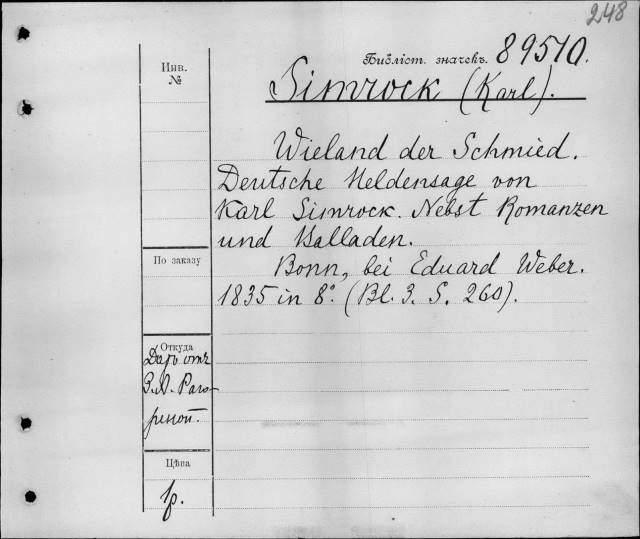 248
Библіот. значекъ. 89510.
Инв.
№
Simrock (Karl).
Wieland der Schmied.
Deutsche Heldensage von
Karl Simrock. Nebst Romanzen
und Balladen.
Bonn, bei Eduard Weber.
1835 in 8º. (Bl. 3. S. 260).
По заказу
Откуда
Даръ отъ
Цѣна
1р.